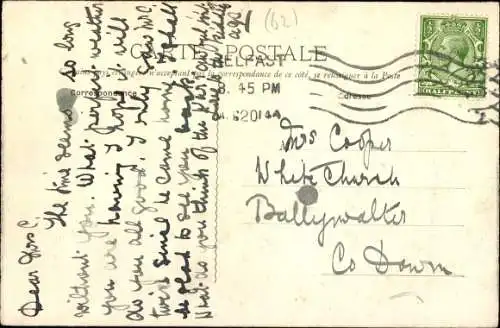 (62)
CARTE POSTALE
Tous les pays étrangers n'acceptent pas la correspondance de ce côté, se renseigner à la Poste
Correspondance
Adresse
BELFAST
8.45 PM
HALFPENNY
Dear Mrs C.
The time seems so long
without you. What perfect weather
you are having I hope it will
do you all good. I only saw Mr C
twice since he came home. I shall
be glad to see you back
What do you think of the
Mrs Cooper
White Church
Ballywalter
Co Down